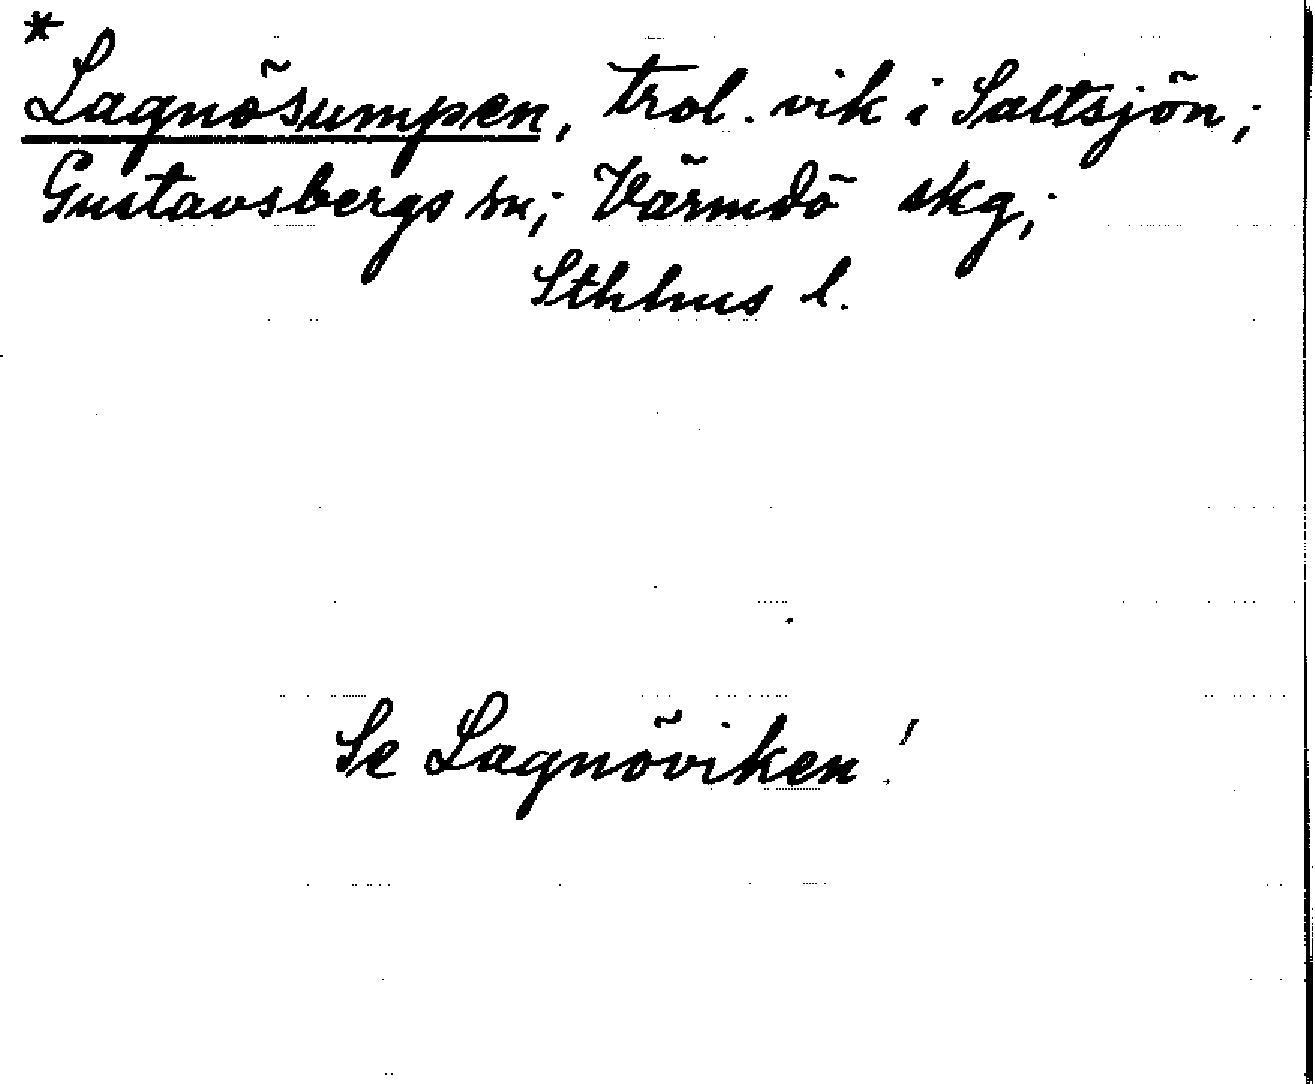 *
Lagnösumpen, trol. vik i Saltsjön;
Gustavsbergs sn; Värmdö skg;
Sthlms l.
Se Lagnöviken!